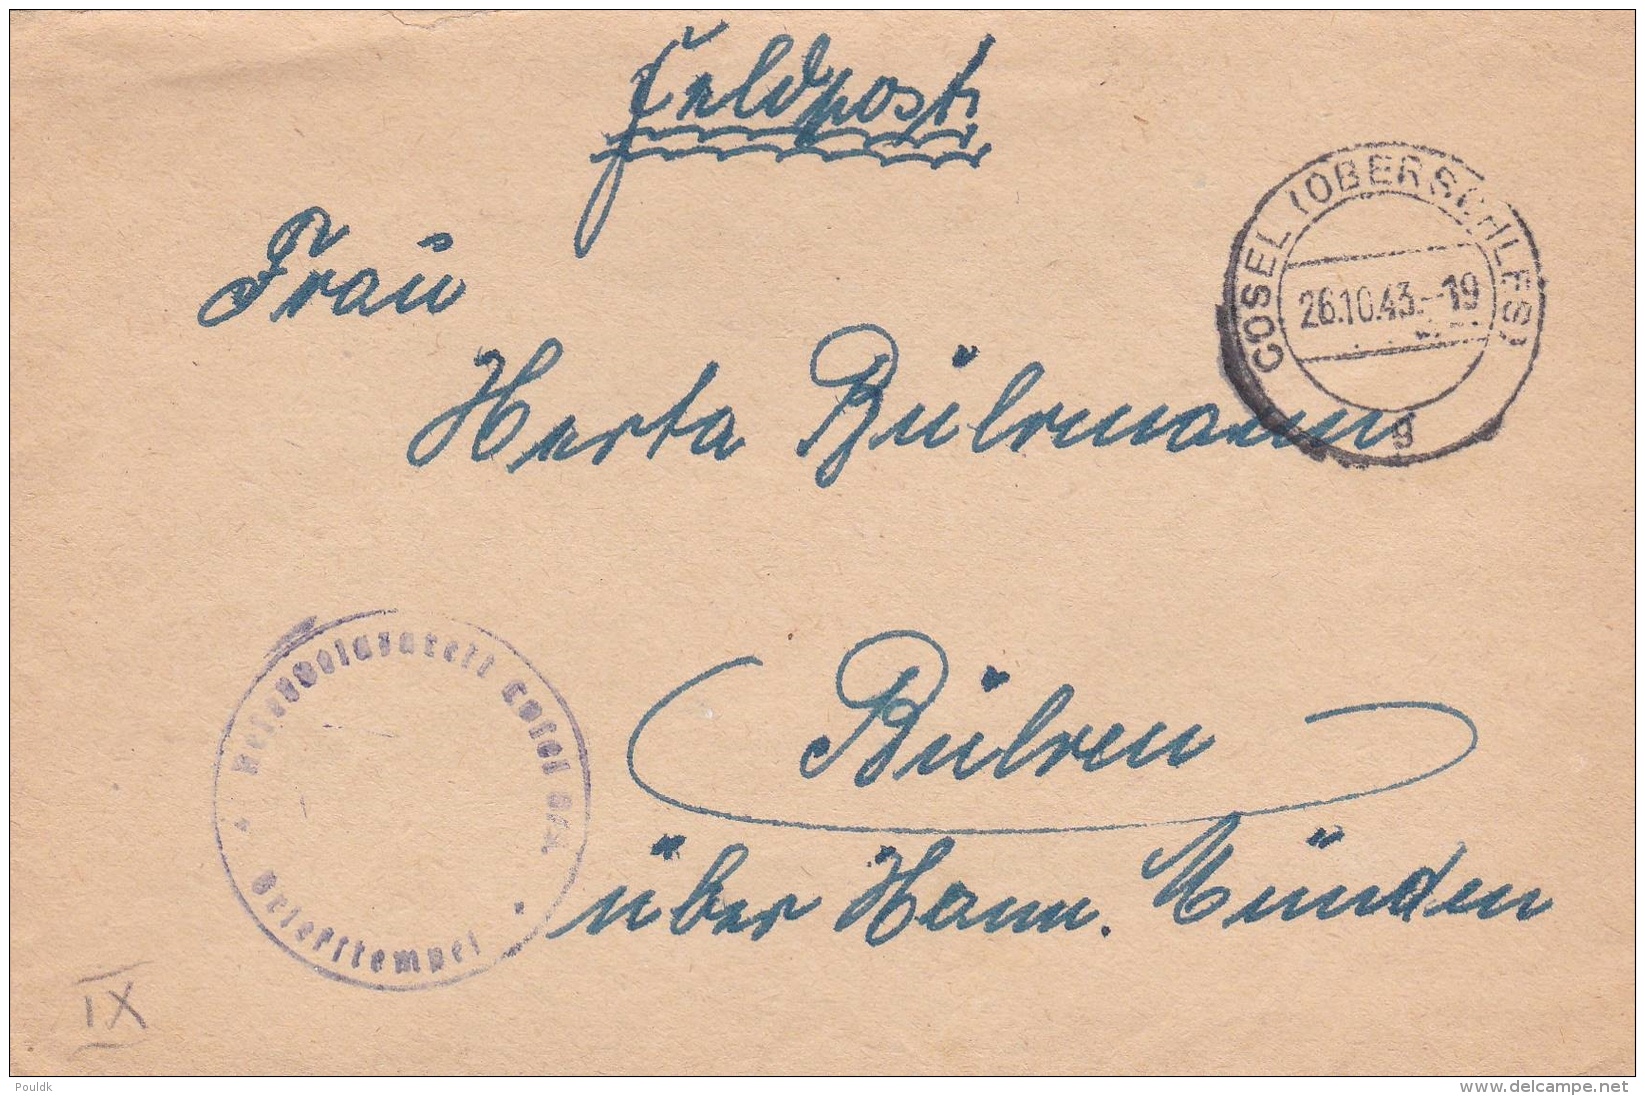 Feldpost
Frau
Herta Bührmann
Bühren
über Hann. Münden
COSEL (OBERSCHLES)
26.10.43.-19
g
Reservelazarett Cosel O/S.
Briefstempel
IX
Pouldk
www.delcampe.net